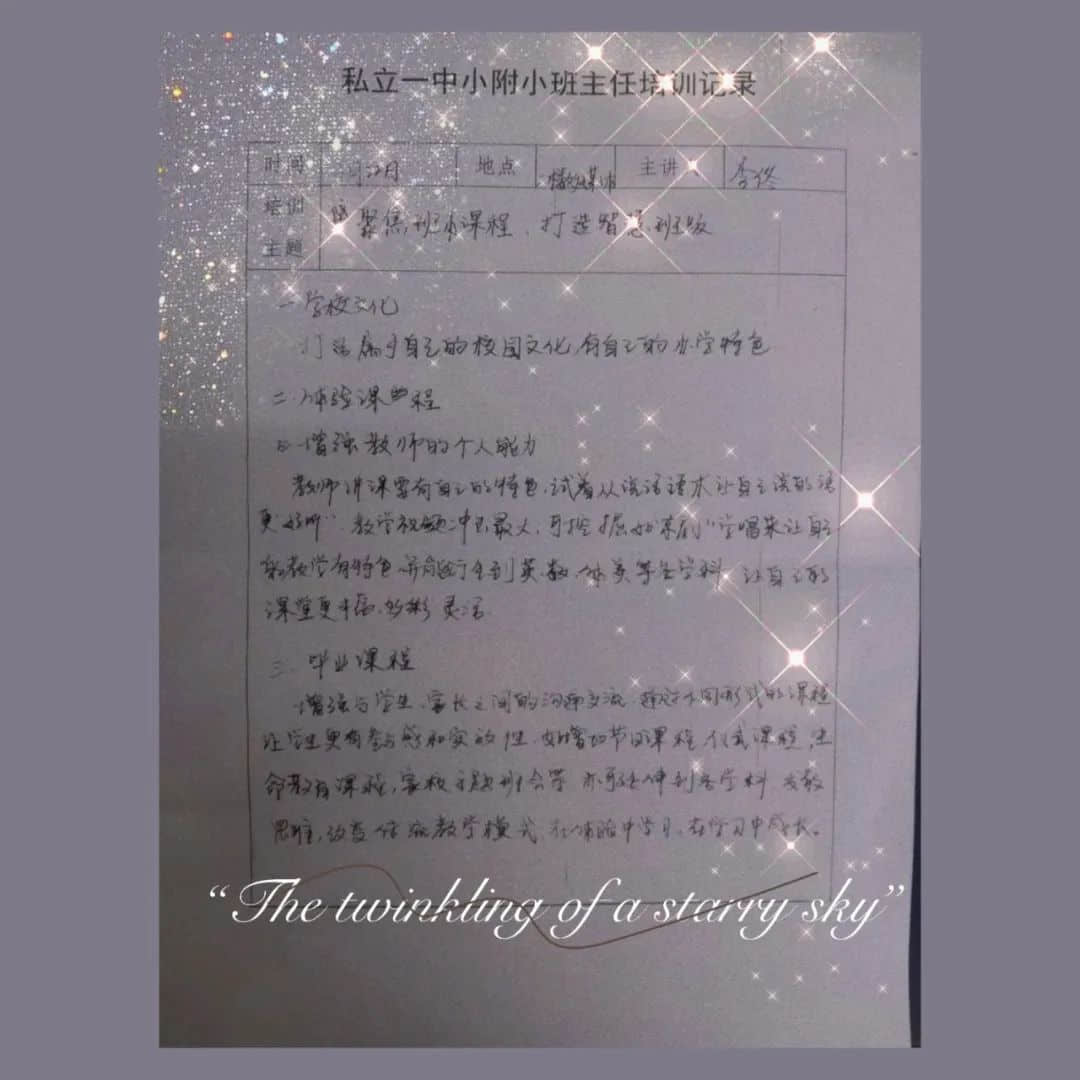 私立一中小附小班主任培训记录
时间 地点 主讲 李佟
培训
主题
聚焦班本课程、打造智慧班级
一 学校文化
打造属于自己的校园文化,有自己的办学特色
二、体验课程
增强教师的个人能力
教师讲课要有自己的特色,试着从说话语术让自己说的话
更"好听",教学视频冲击最大,可挖掘 学唱来让自己
的教学有特色 并 到英、数、体美等学科 让自己的
课堂更丰富、多彩、灵活
三、毕业课程
增强与学生、家长之间的沟通交流,通过不同形式的课程
让学生更有参与感和实效性,如增加节日课程,仪式课程,生
命教育课程,家校主题班会等 亦可延伸到各学科 发散
思维,改变传统教学模式,在体验中学习,在学习中成长。
"The twinkling of a starry sky"